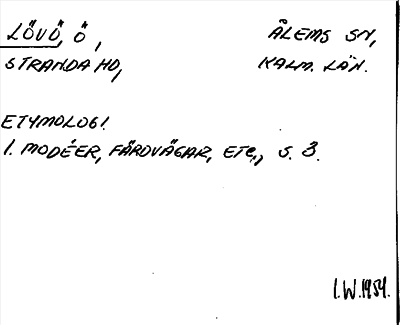 LÖVÖ, Ö, ÅLEMS SN,
STRANDA HD, KALM. LÄN.
ETYMOLOGI.
I. MODÉER, FÄRDVÄGAR, ETC., S. 3.
I.W.1954.